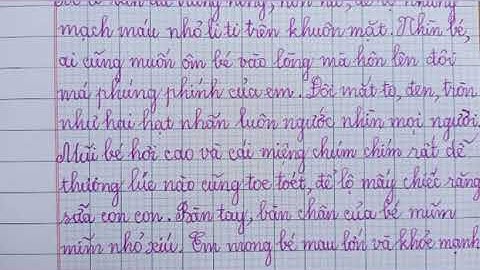 mạch máu nhỏ li ti trên khuôn mặt. Nhìn bé,
ai cũng muốn ôm bé vào lòng mà hôn lên đôi
má phúng phính của em. Đôi mắt to, đen, tròn
như hai hạt nhãn luôn ngước nhìn mọi người.
Mũi bé hơi cao và cái miệng chúm chím rất dễ
thương lúc nào cũng toe toét, để lộ mấy chiếc răng
sữa con con. Bàn tay, bàn chân của bé mũm
mĩm nhỏ xíu. Em mong bé mau lớn và khỏe mạnh